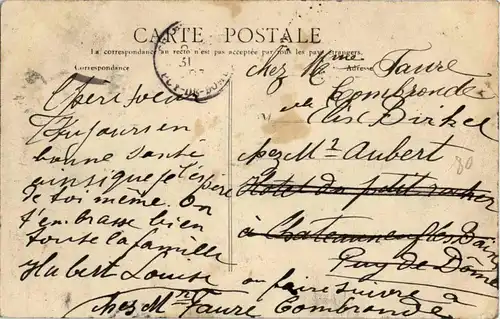 CARTE POSTALE
La correspondance au recto n'est pas acceptée par tous les pays étrangers.
Correspondance
Adresse
31
PUY-DE-DOME
Toujours en
bonne santé
ainsi que je l'espère
de toi même. On
t'embrasse bien
toute la famille
Hubert Louise
chez Mme Faure
Combronde
chez Mr Aubert
Hotel du petit
à Chateauneuf les Bains
Puy de Dôme
ou faire suivre à
chez Mr Faure Combronde
80